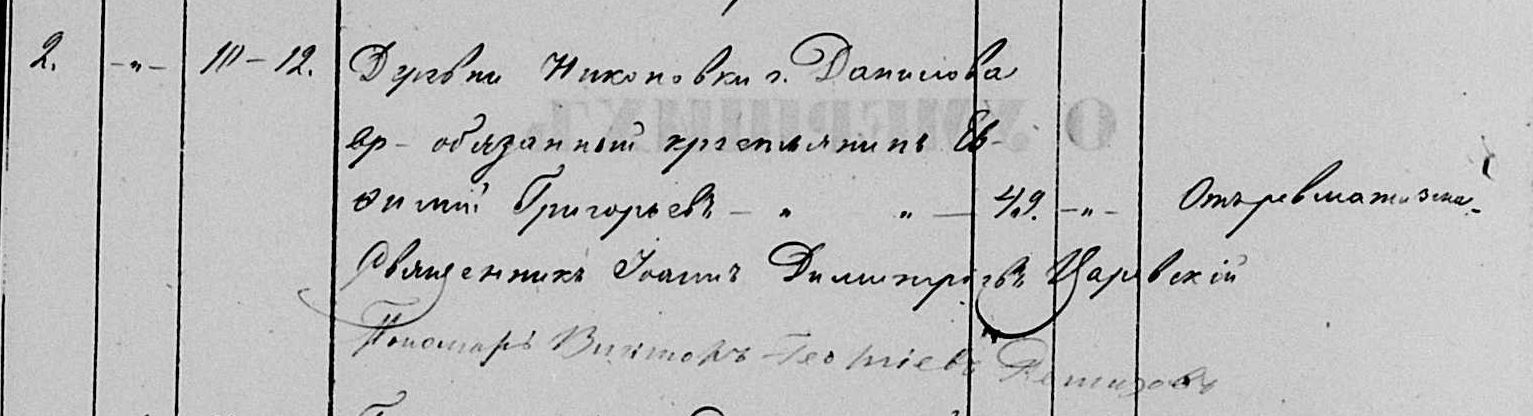 2. -"- 10-12. Деревни Никоновки г. Данилова
вр-обязанный крестьянинъ Ев-
ѳимій Григорьевъ — " " — 49. -"- Отъ ревматизма.
Священникъ Іоаннъ Димитріевъ Царевскій
Пономарь Викторъ Георгіевъ